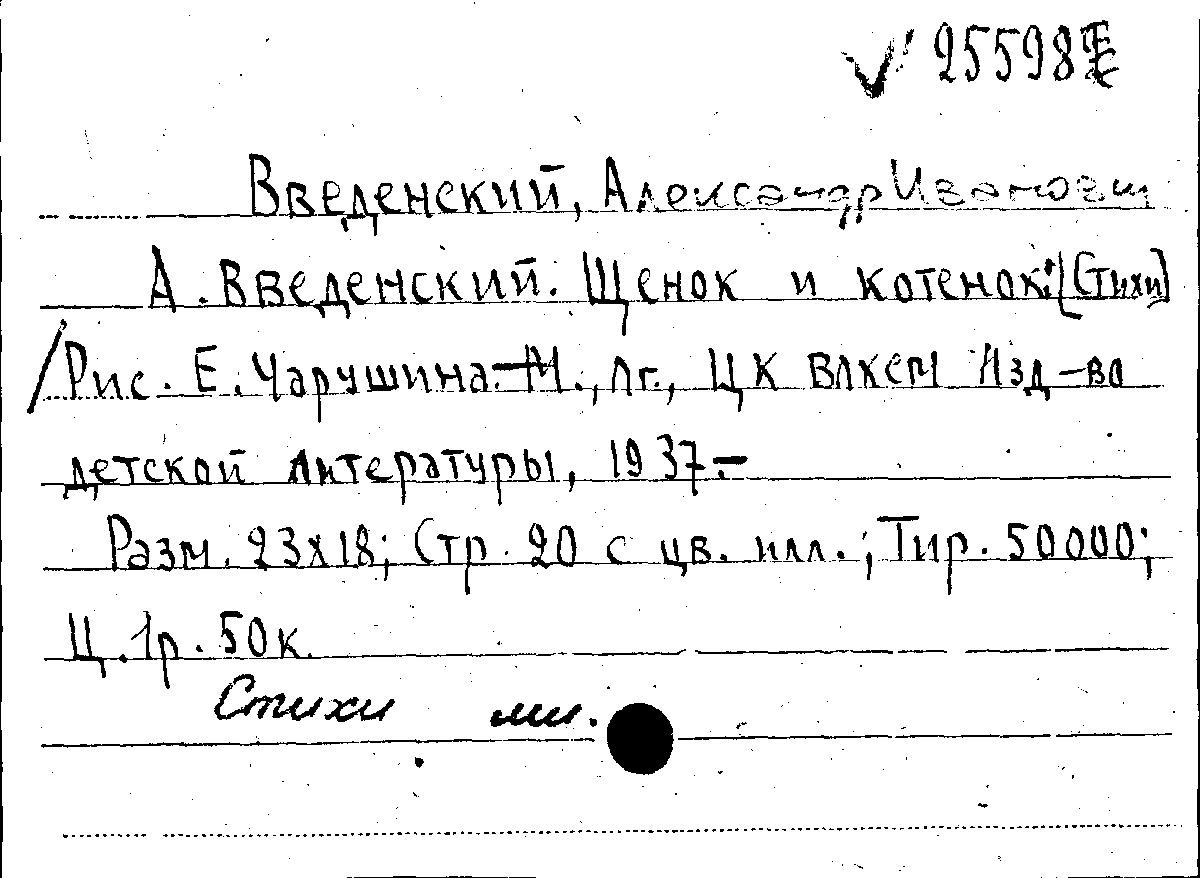 √ 25598
Введенский, Александр Иванович
А. Введенский. Щенок и котенок: [Стихи]
/Рис. Е. Чарушина.-М., Лг., ЦК ВЛКСМ Изд-во
детской литературы, 1937.-
Разм. 23х18; Стр. 20 с цв. илл.; Тир. 50000;
Ц. 1р. 50к.
Стихи мл.